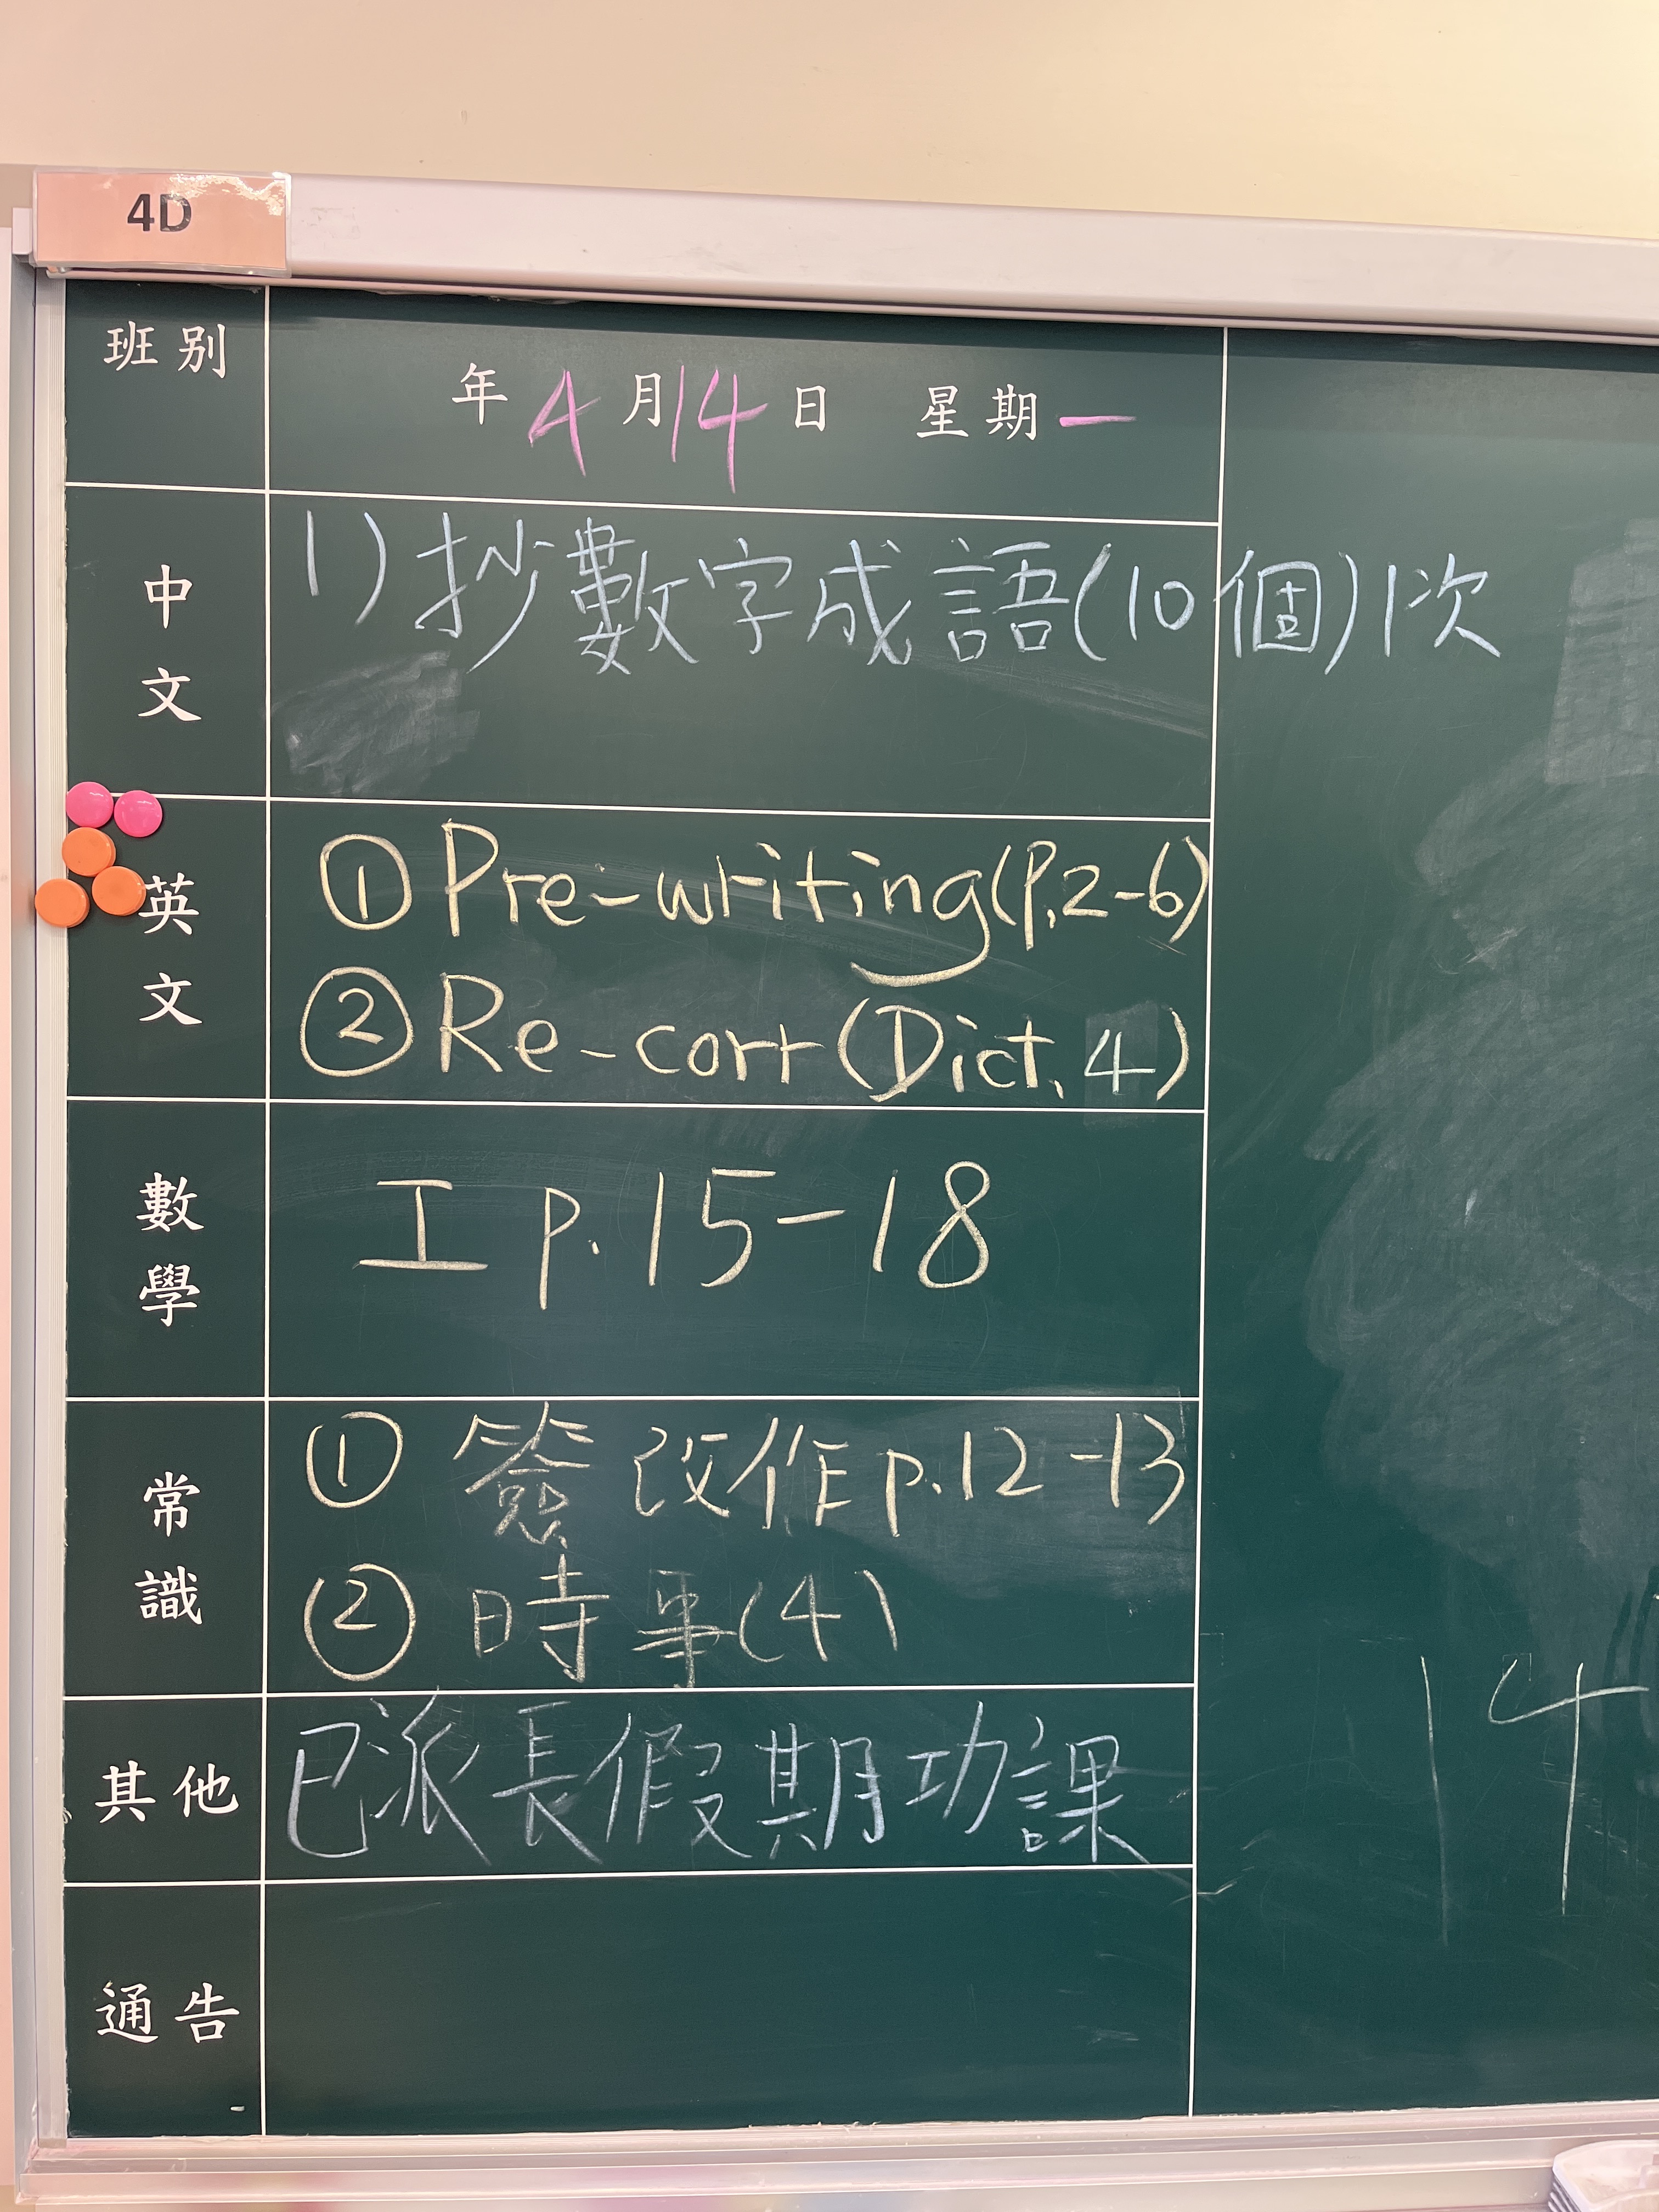 4D
班別
年4月14日 星期一
中文
1)抄數字成語(10個)1次
英文
①Pre-writing(P.2-6)
②Re-corr(Dict.4)
數學
工 p.15-18
常識
① 簽改作p.12-13
② 時事(4)
其他
已派長假期功課
14
通告